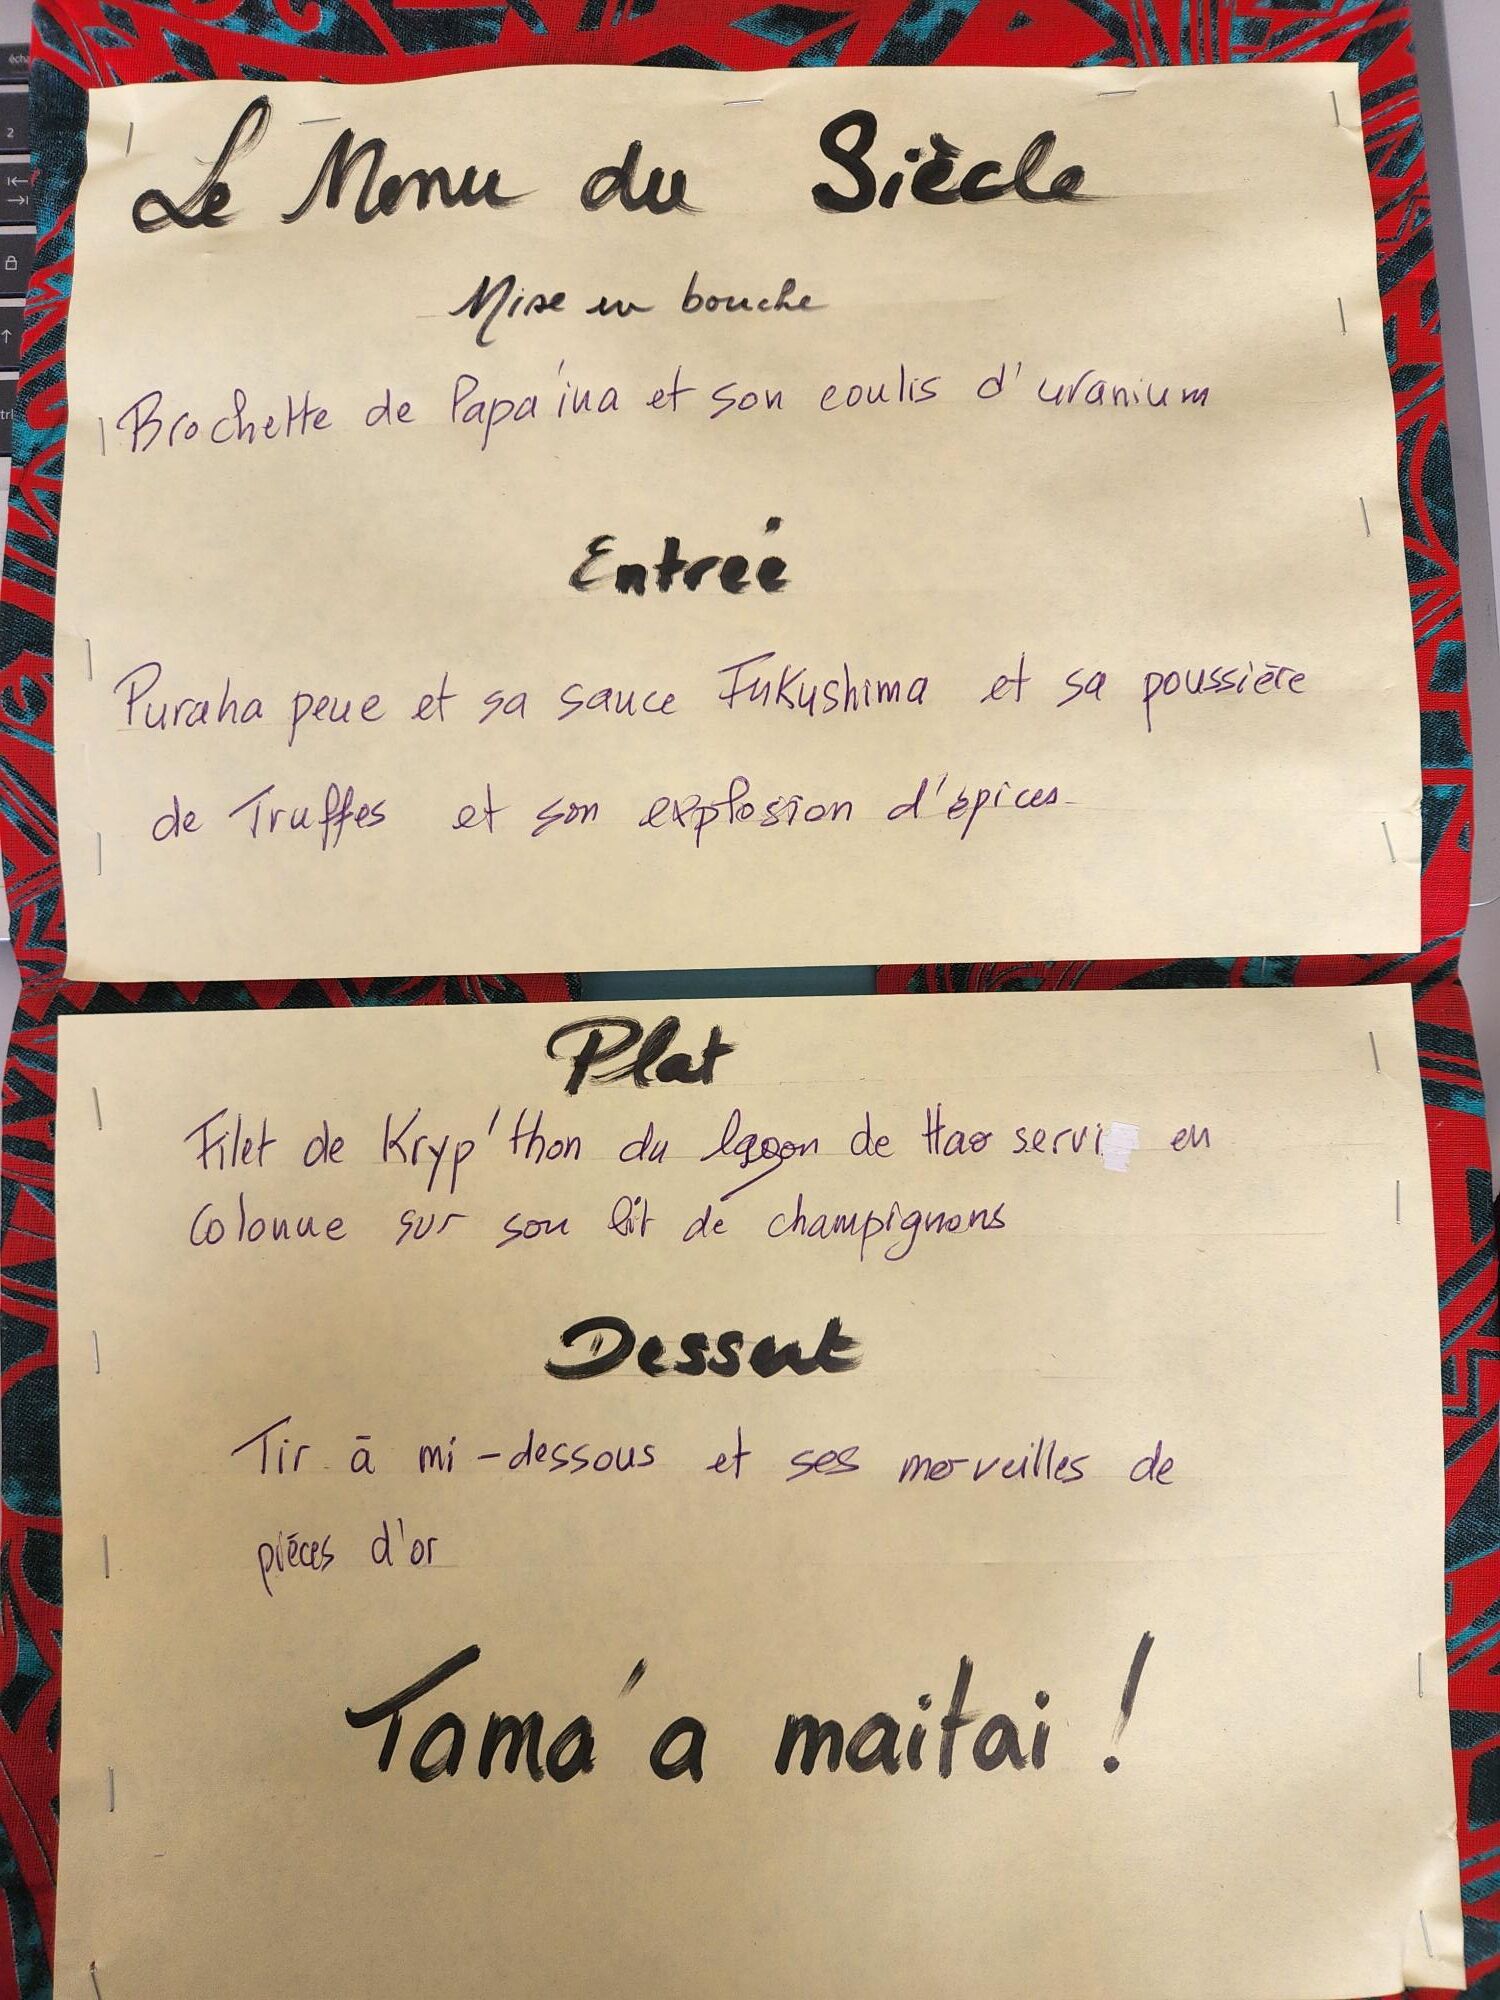 Le Menu du Siècle
Mise en bouche
Brochette de Papa'ina et son coulis d'uranium
Entrée
Puraha peue et sa sauce Fukushima et sa poussière
de Truffes et son explosion d'épices
Plat
Filet de Kryp'thon du lagon de Hao servi en
Colonne sur son lit de champignons
Dessert
Tir à mi-dessous et ses merveilles de
pièces d'or
Tama'a maitai !